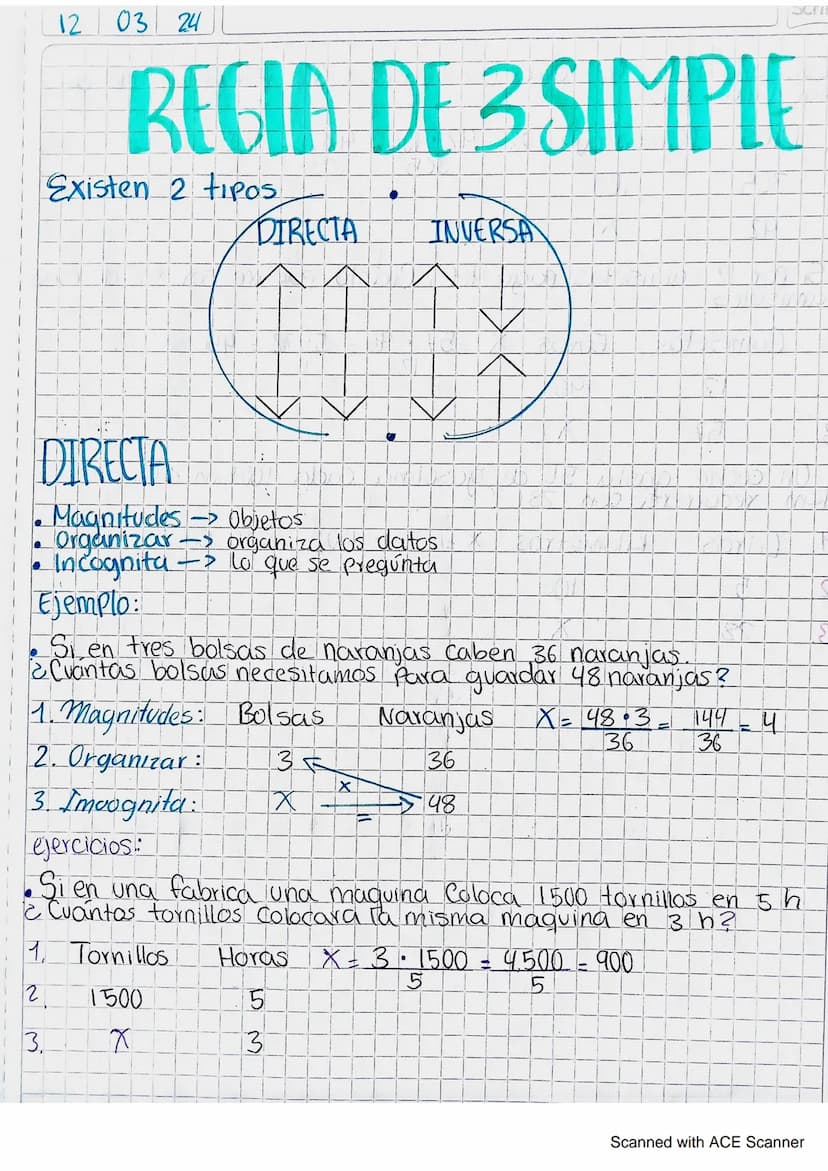 12 03 24
REGLA DE 3 SIMPLE
Existen 2 tipos
DIRECTA INVERSA
DIRECTA
• Magnitudes -> Objetos
• Organizar -> organiza los datos
• Incognita -> lo que se pregunta
Ejemplo:
• Si en tres bolsas de naranjas caben 36 naranjas.
¿Cuantas bolsas necesitamos para guardar 48 naranjas?
1. Magnitudes: Bolsas Naranjas X = 48 • 3 / 36 = 144 / 36 = 4
2. Organizar: 3 36
x
3. Imcognita: X = 48
ejercicios:
• Si en una fabrica una maquina Coloca 1500 tornillos en 5 h
¿Cuántos tornillos colocara la misma maquina en 3 h?
1. Tornillos Horas X = 3 • 1500 / 5 = 4500 / 5 = 900
2. 1500 5
3. X 3
Scanned with ACE Scanner